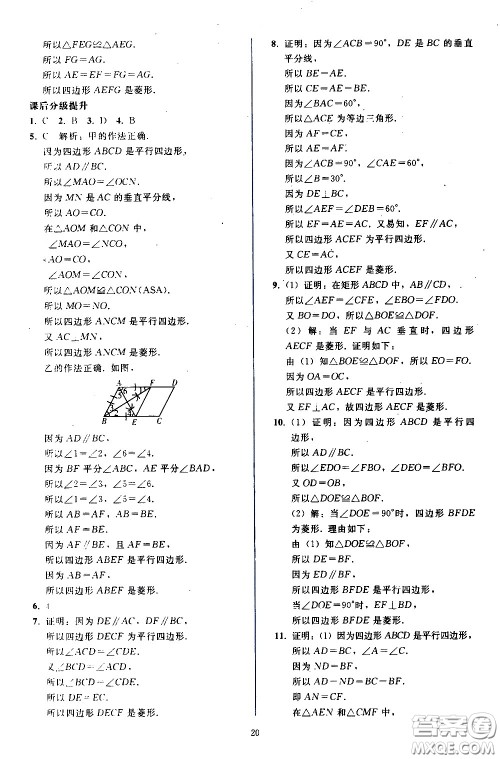 所以△FEG≌△AEG.
所以 FG=AG.
所以 AE=EF=FG=AG.
所以四边形 AEFG 是菱形.
课后分级提升
1. C 2. B 3. D 4. B
5. C 解析：甲的作法正确.
因为四边形 ABCD 是平行四边形,
所以 AD∥BC.
所以∠MAO=∠OCN.
因为 MN 是 AC 的垂直平分线,
所以 AO=CO.
在△AOM 和△CON 中,
∠MAO=∠NCO,
AO=CO,
∠AOM=∠CON,
所以△AOM≌△CON (ASA).
所以 MO=NO.
所以四边形 ANCM 是平行四边形.
又 AC⊥MN,
所以四边形 ANCM 是菱形.
乙的作法正确. 如图,
A F D
B E C
因为 AD∥BC,
所以∠1=∠2, ∠6=∠7.
因为 BF 平分∠ABC, AE 平分∠BAD,
所以∠2=∠3, ∠5=∠6.
所以∠1=∠3, ∠5=∠7.
所以 AB=AF, AB=BE.
所以 AF=BE.
因为 AF∥BE, 且 AF=BE,
所以四边形 ABEF 是平行四边形.
因为 AB=AF,
所以四边形 ABEF 是菱形.
6. 4
7. 证明：因为 DE∥AC, DF∥BC,
所以四边形 DECF 为平行四边形.
所以∠ACD=∠CDE.
又∠BCD=∠ACD,
所以∠BCD=∠CDE.
所以 DE=EC.
所以四边形 DECF 是菱形.
8. 证明：因为∠ACB=90°, DE 是 BC 的垂直
平分线,
所以 BE=AE.
所以 CE=AE=BE.
因为∠BAC=60°,
所以△ACE 为等边三角形.
因为 AE=AF,
因为∠ACB=90°, ∠BAC=60°,
所以∠B=30°.
因为 DE⊥BC,
所以 AC=CE=AE=BE.
所以 CE=AF. 又易知, EF∥AC,
所以四边形 ACEF 为平行四边形.
又 CE=AC,
所以四边形 ACEF 是菱形.
9. (1) 证明：在矩形 ABCD 中, AB∥CD,
所以∠AEF=∠CFE, ∠EBO=∠FDO.
所以△BOE≌△DOF.
(2) 解：当 EF 与 AC 垂直时, 四边形
AECF 是菱形. 证明如下：
由 (1) 知△BOE≌△DOF, 所以 EO=FO.
因为 OA=OC,
所以四边形 AECF 是平行四边形.
又 EF⊥AC, 故四边形 AECF 是菱形.
10. (1) 证明：因为四边形 ABCD 是平行四
边形,
所以 AD∥BC.
所以∠EDO=∠FBO, ∠DEO=∠BFO.
又 OD=OB,
所以△DOE≌△BOF.
(2) 解：当∠DOE=90°时, 四边形 BFDE
为菱形. 理由如下：
由 (1) 知△DOE≌△BOF,
所以 OE=OF.
又 OB=OD,
所以四边形 BFDE 是平行四边形.
当∠DOE=90°时, EF⊥BD,
所以四边形 BFDE 为菱形.
11. 证明：(1) 因为四边形 ABCD 是平行四边形,
所以 AD=BC.
因为 ND=BF,
所以 AD-ND=BC-BF,
即 AN=CF.
在△AEN 和△CMF 中,
20
答案圈
MXQE.COM